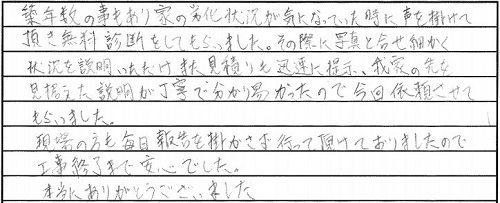 築年数の事もあり家の劣化状況が気になっていた時に声を掛けて
頂き無料診断をしてもらいました。その際に写真と合せ細かく
状況を説明いただけまた見積りも迅速に提示、我家の先を
見据えた説明が丁寧で分かり易かったので今回依頼させて
もらいました。
現場の方も毎日報告を掛かさず行って頂けておりましたので
工事終了まで安心でした。
本当にありがとうございました